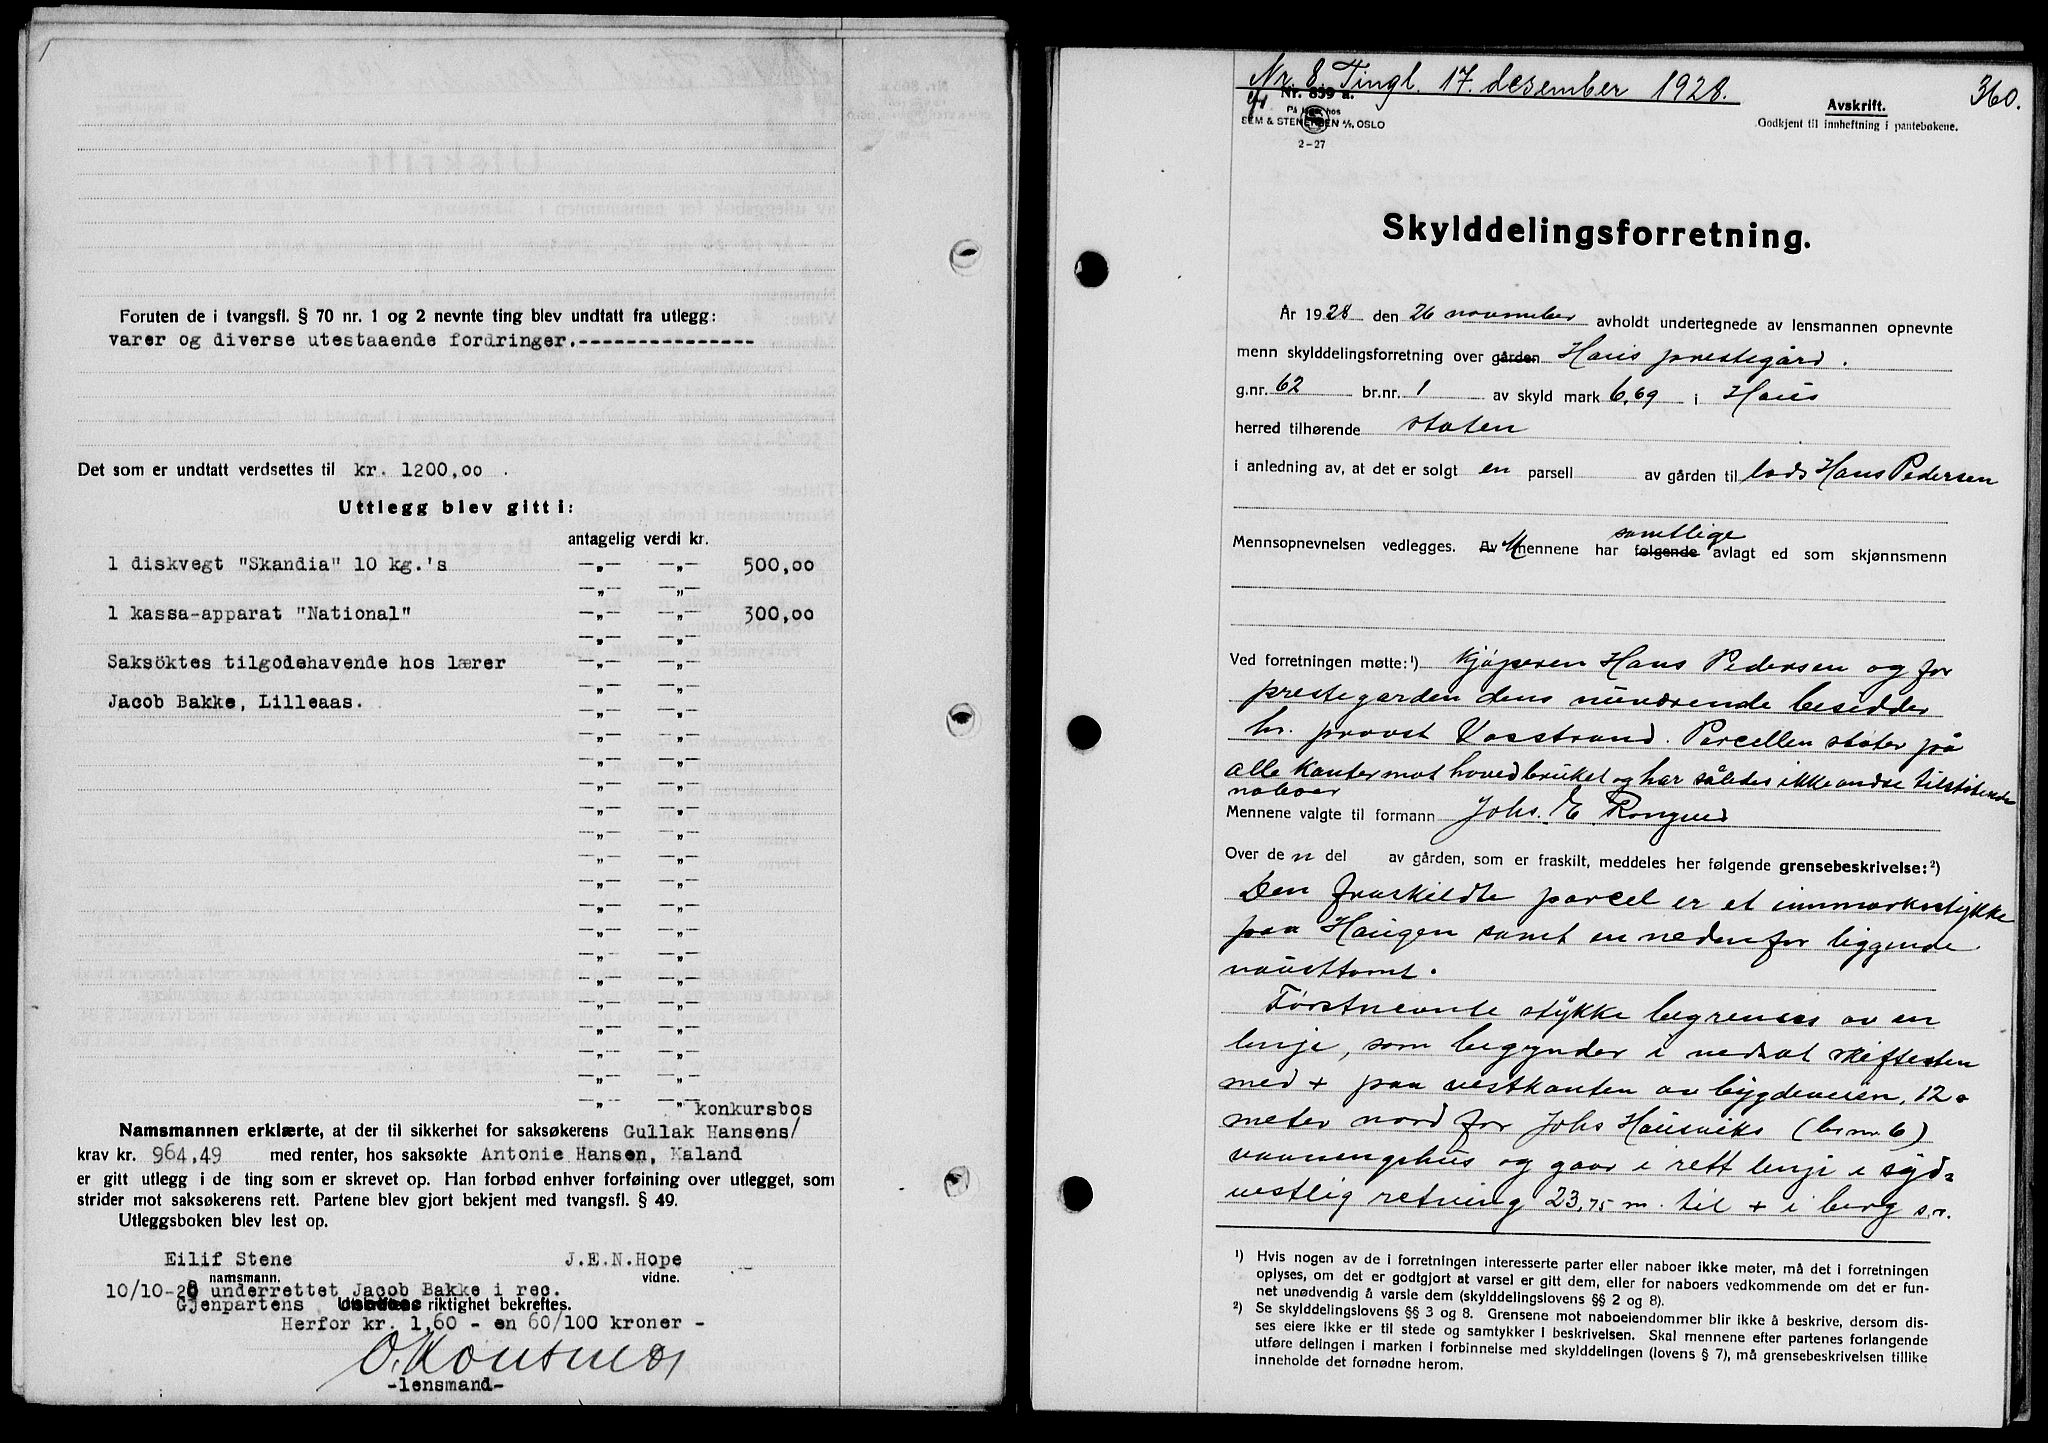 Foruten de i tvangsfl. § 70 nr. 1 og 2 nevnte ting blev undtatt fra utlegg:
varer og diverse utestaaende fordringer.----------------
Det som er undtatt verdsettes til kr. 1200,00 .
Uttlegg blev gitt i:
antagelig verdi kr.
1 diskvegt "Skandia" 10 kg.'s —„— —„— 500,00
1 kassa-apparat "National" —„— —„— 300,00
Saksöktes tilgodehavende hos lærer
Jacob Bakke, Lilleaas.
konkursbos
Namsmannen erklærte, at der til sikkerhet for saksøkerens Gullak Hansens/
krav kr. 964,49 med renter, hos saksøkte Antonie Hansen, Kaland
er gitt utlegg i de ting som er skrevet op. Han forbød enhver forføining over utlegget, som
strider mot saksøkerens rett. Partene blev gjort bekjent med tvangsfl. § 49.
Utleggsboken blev lest op.
Eilif Stene J.E.N.Hope
namsmann. vidne.
10/10-28 underrettet Jacob Bakke i rec.
Gjenpartens riktighet bekreftes.
Herfor kr. 1,60 - en 60/100 kroner -
-lensmand-
Nr. 8. Tingl. 17. desember 1928.
360.
Nr. 859 a.
På lager hos
SEM & STENERSEN A/S, OSLO
2-27
Avskrift.
Godkjent til innheftning i pantebøkene.
Skylddelingsforretning.
År 1928 den 26 november avholdt undertegnede av lensmannen opnevnte
menn skylddelingsforretning over gården Haus prestegård.
g.nr. 62 br.nr. 1 av skyld mark 6,69 i Haus
herred tilhørende staten
i anledning av, at det er solgt en parsell av gården til lods Hans Pedersen
samtlige
Mennsopnevnelsen vedlegges. Av Mennene har følgende avlagt ed som skjønnsmenn
Ved forretningen møtte:¹) Kjøperen Hans Pedersen og for
prestegarden dens nuværende besidder
hr. provst Vasstrand. Parcellen støter på
alle kanter mot hovedbruket og har således ikke andre tilstøtende
naboer
Mennene valgte til formann Johs. E Rongved
Over den del av gården, som er fraskilt, meddeles her følgende grensebeskrivelse:²)
Den fraskildte parcel er et innmarksstykke
paa Haugen samt en nedenfor liggende
nausttomt.
Førstnevnte stykke begrenses av en
linje, som begynder i nedsat skiftesten
med + paa vestkanten av bygdeveien, 12
meter nord for Johs Hausviks (br.nr. 6)
vaaningshus og gaar i rett linje i syd-
vestlig retning 23,75 m. til + i berg
¹) Hvis nogen av de i forretningen interesserte parter eller naboer ikke møter, må det i forretningen
oplyses, om det er godtgjort at varsel er gitt dem, eller for naboers vedkommende om det er fun-
net unødvendig å varsle dem (skylddelingslovens §§ 2 og 8).
²) Se skylddelingslovens §§ 3 og 8. Grensene mot naboeiendommer blir ikke å beskrive, dersom dis-
ses eiere ikke er til stede og samtykker i beskrivelsen. Skal mennene efter partenes forlangende
utføre delingen i marken i forbinnelse med skylddelingen (lovens § 7), må grensebeskrivelsen tillike
inneholde det fornødne herom.